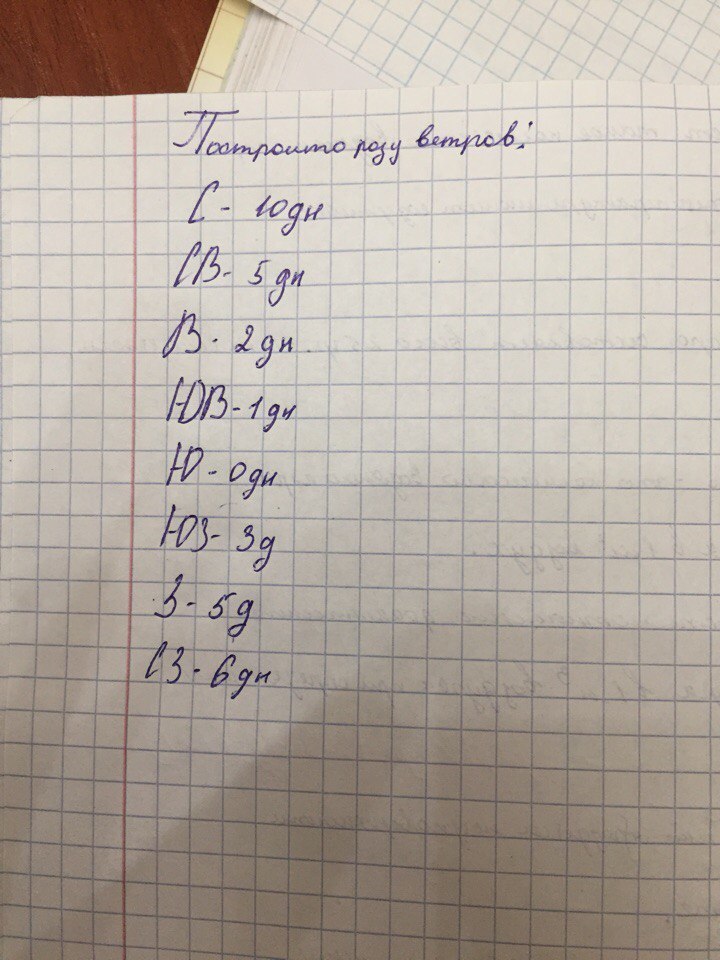 Построито розу ветров:
С - 10дн
СВ - 5 дн
В - 2 дн.
ЮВ - 1 дн
Ю - 0дн
ЮЗ - 3д
З - 5 д
СЗ - 6 дн